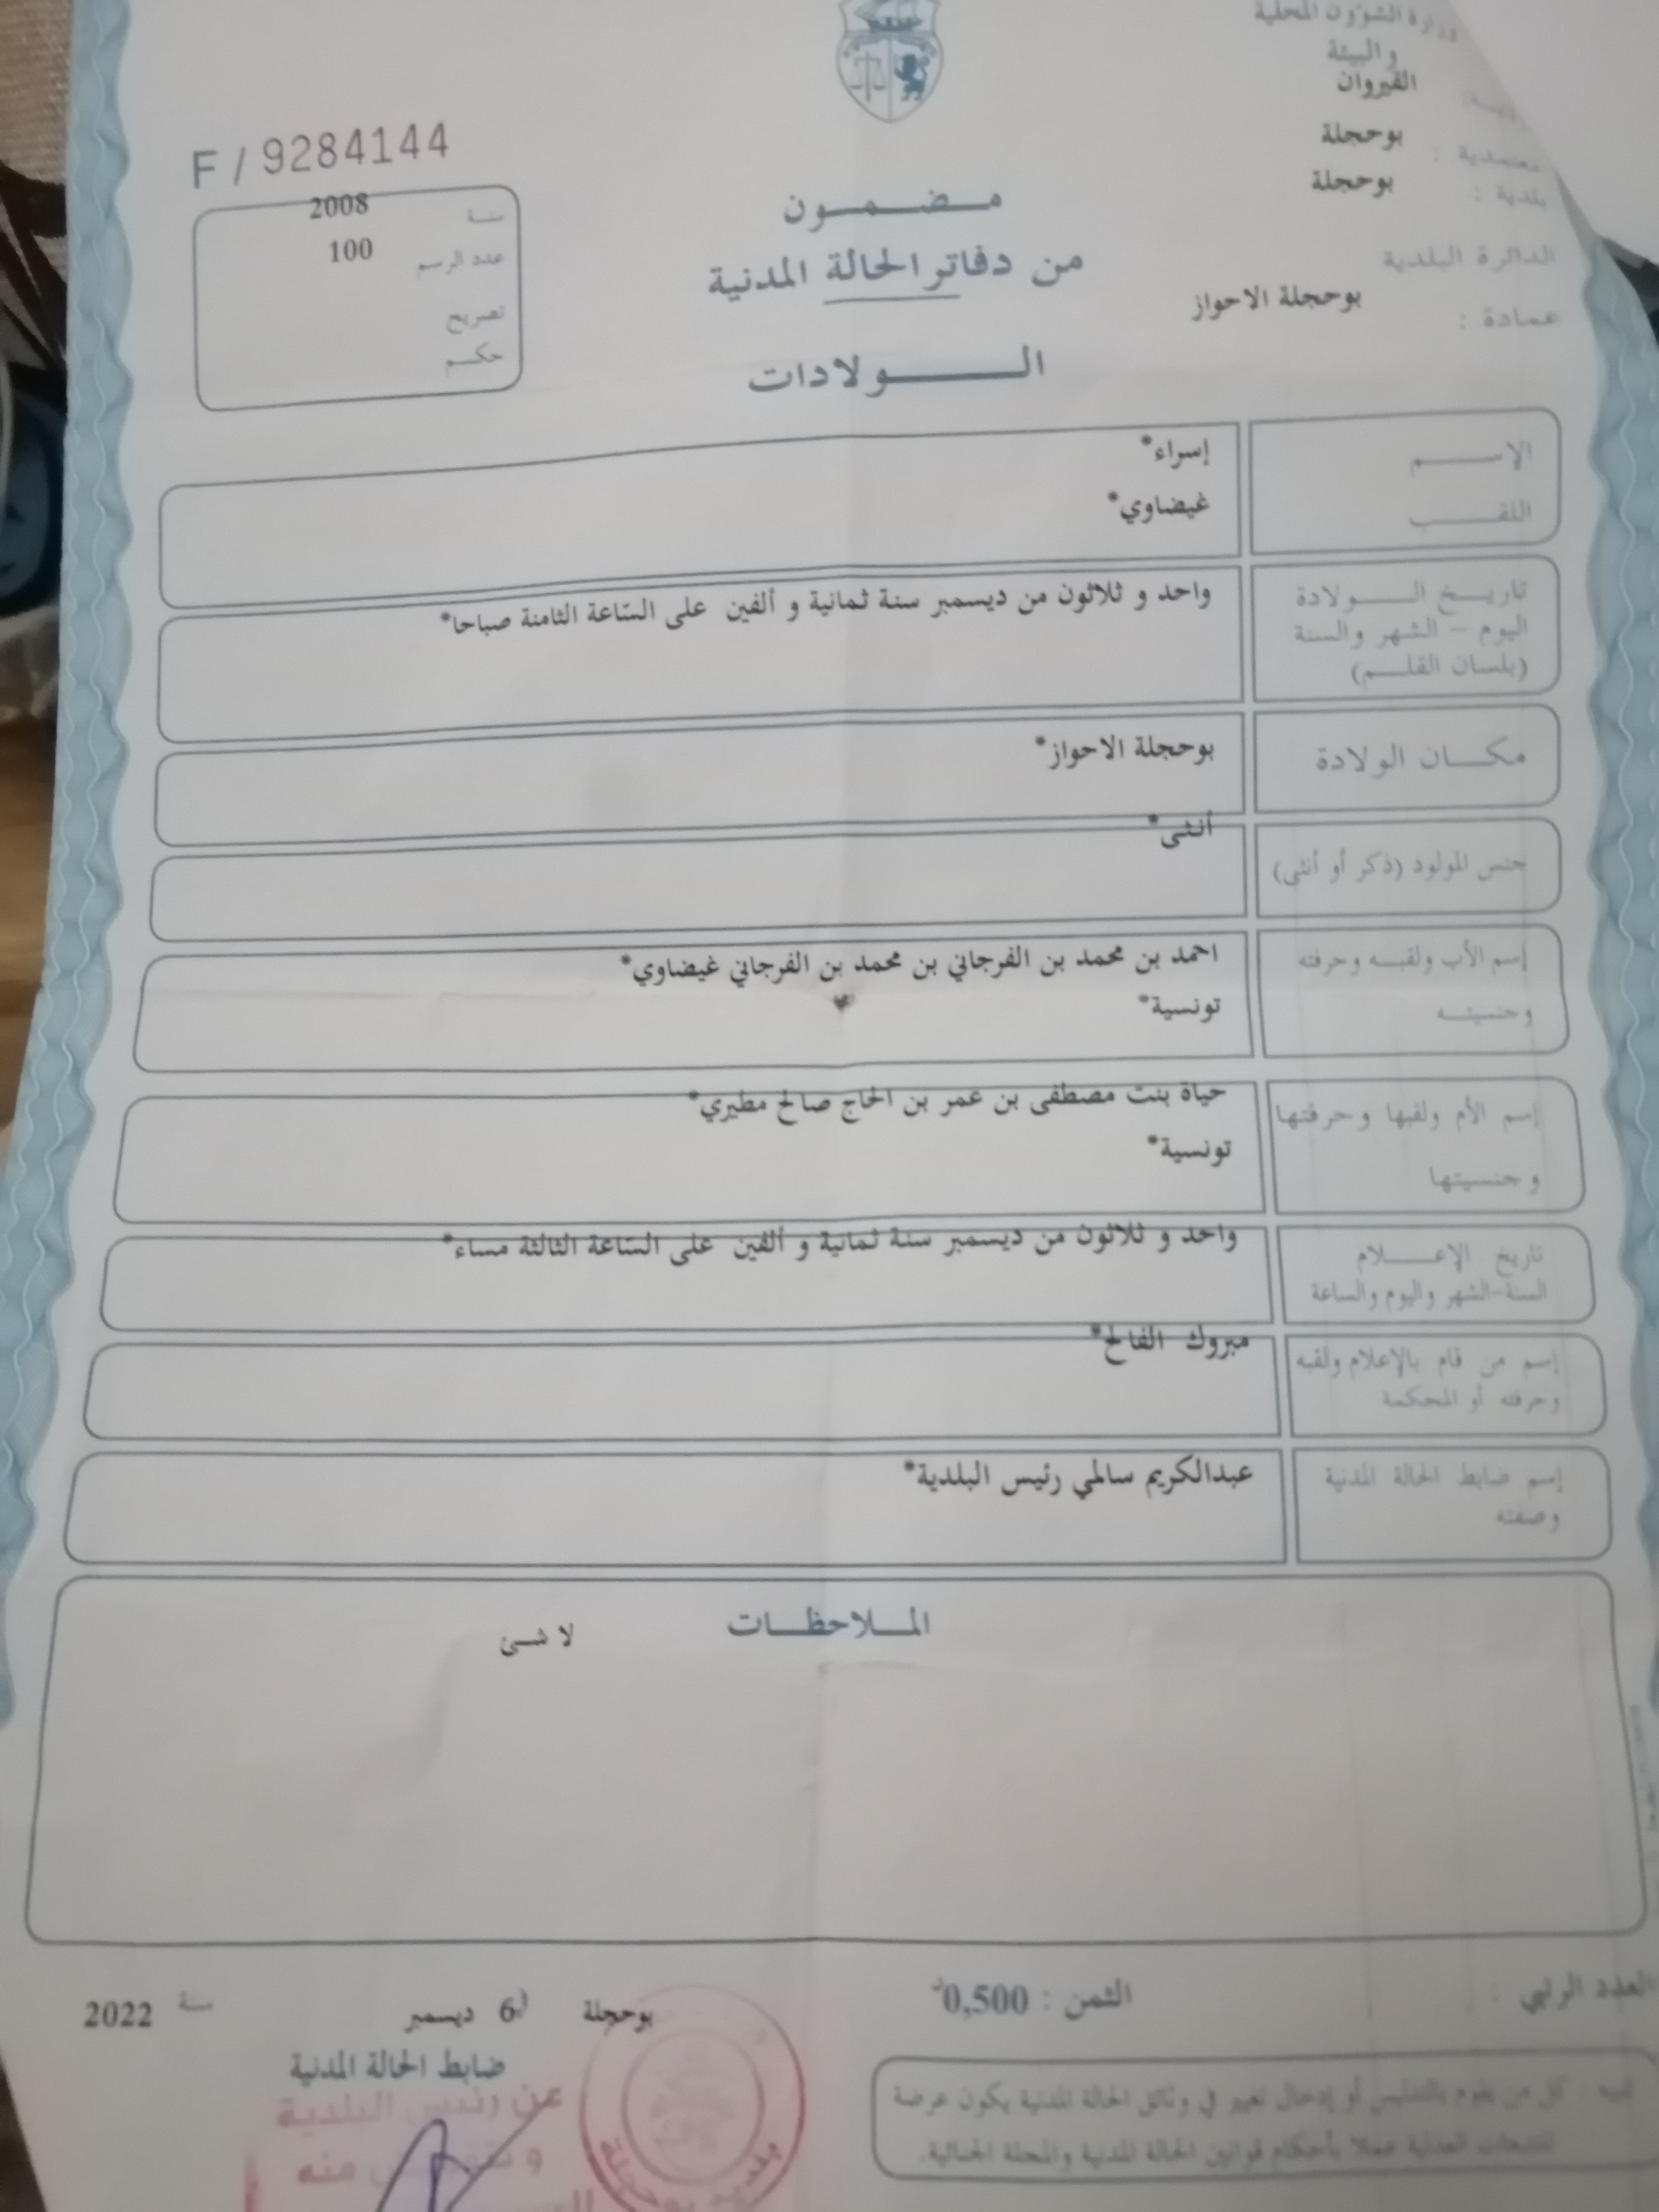 وزارة الشؤون المحلية
والبيئة
القيروان
معتمدية : بوحجلة
بلدية : بوحجلة
الدائرة البلدية
عمادة : بوحجلة الاحواز
F / 9284144
سنة 2008
عدد الرسم 100
تصريح
حكم
مضمون
من دفاتر الحالة المدنية
الولادات
الإسم إسراء*
اللقب غيضاوي*
تاريخ الولادة واحد و ثلاثون من ديسمبر سنة ثمانية و ألفين على السّاعة الثامنة صباحا*
اليوم - الشهر والسنة
(بلسان القلم)
مكان الولادة بوحجلة الاحواز*
أنثى*
جنس المولود (ذكر أو أنثى)
إسم الأب ولقبه وحرفته احمد بن محمد بن الفرجاني بن محمد بن الفرجاني غيضاوي*
وجنسيته تونسية*
حياة بنت مصطفى بن عمر بن الحاج صالح مطيري*
إسم الأم ولقبها وحرفتها
تونسية*
وجنسيتها
واحد و ثلاثون من ديسمبر سنة ثمانية و ألفين على السّاعة الثالثة مساء*
تاريخ الإعلام
السنة-الشهر واليوم والساعة
مبروك الفالح*
إسم من قام بالإعلام ولقبه
وحرفته أو المحكمة
إسم ضابط الحالة المدنية عبدالكريم سالمي رئيس البلدية*
وصفته
الملاحظات
لا شئ
العدد الرتبي :
الثمن : 0,500د
بوحجلة 6 ديسمبر سنة 2022
ضابط الحالة المدنية
عن رئيس البلدية
منه
بلدية بوحجلة
تنبيه : كل من يقوم بالتدليس أو إدخال تغيير في وثائق الحالة المدنية يكون عرضة
للتتبعات العدلية عملا بأحكام قوانين الحالة المدنية والمجلة الجنائية.